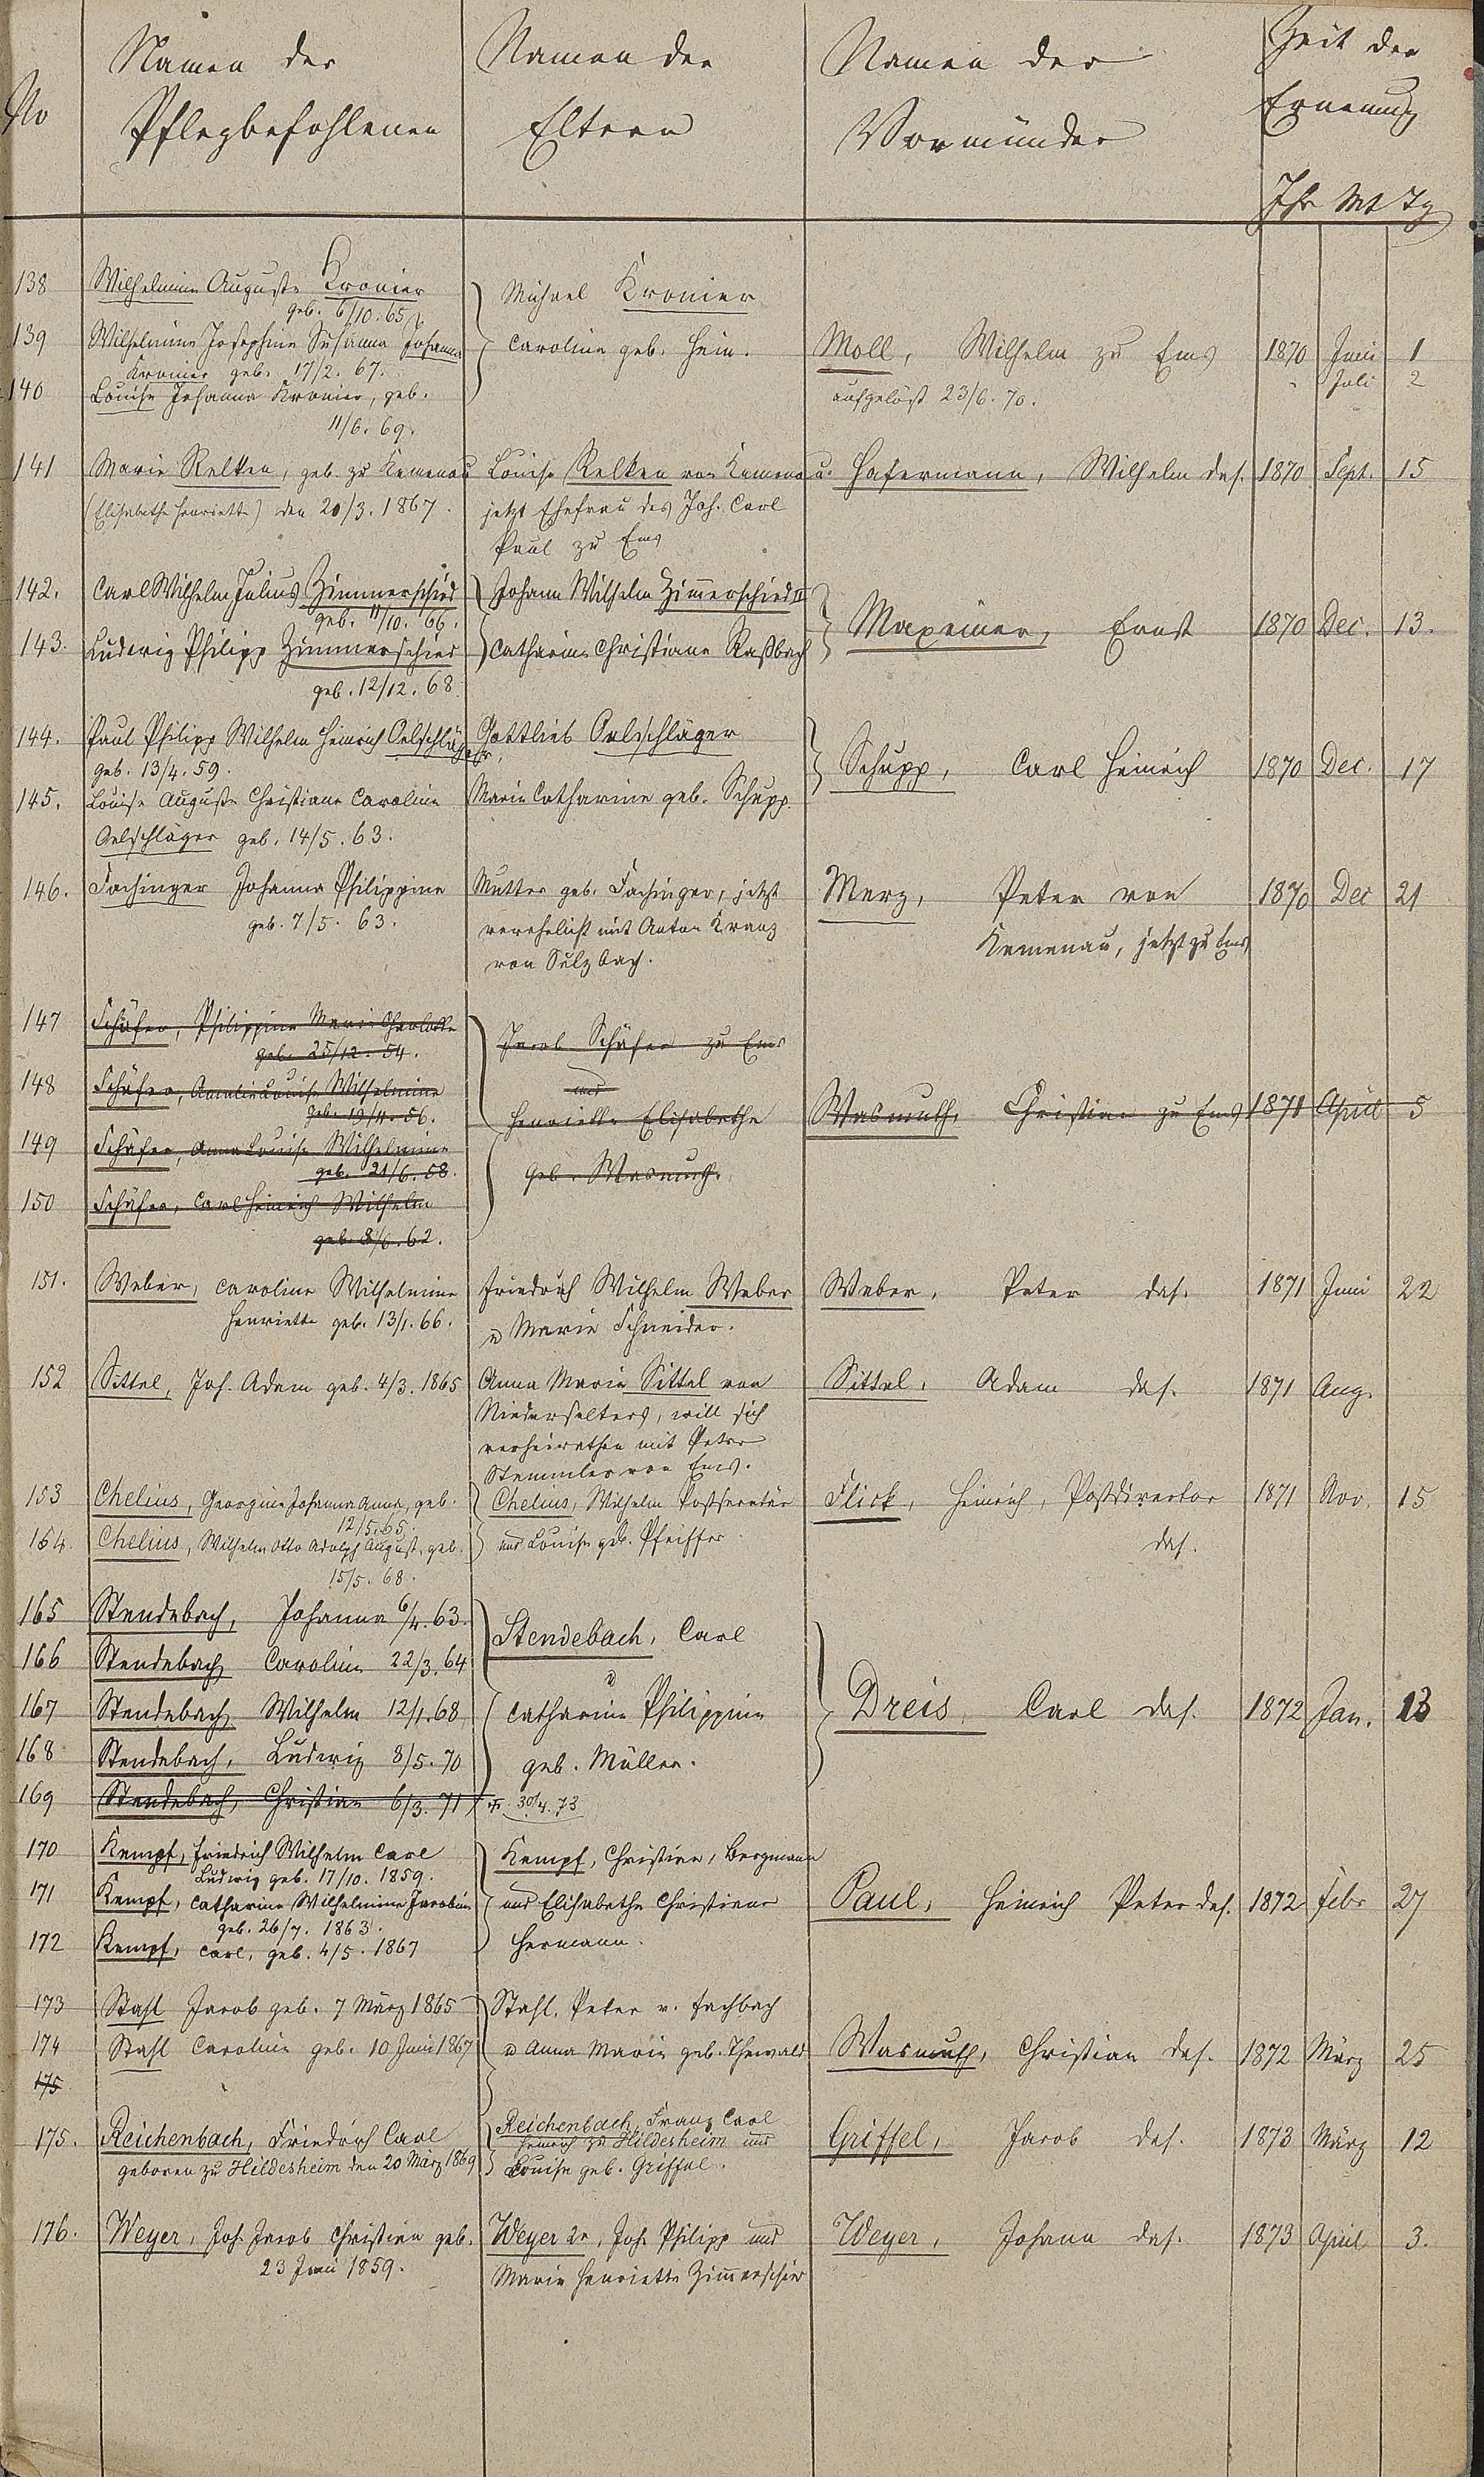 No
Namen der
Pflegbefohlenen
Namen der
Eltern
Namen der
Vormünder
Zeit der
Ernennung
Jhr Mt Tg
138 Wilhelmine Auguste Kronier
geb. 6/10. 65
Michael Kronier
139 Wilhelmine Josephine Susanna Johanna
Kronier geb. 17/2. 67.
Caroline geb. Hein.
Moll, Wilhelm zu Ems 1870 Juni 1
" Juli 2
140 Louise Johanna Kronier, geb.
11/6. 69.
aufgelöst 23/6. 70.
141 Marie Relken, geb. zu Kemenau
(Elisabethe Henriette) den 20/3. 1867.
Louise Relken von Kemenau
jetzt Ehefrau des Joh. Carl
Paul zu Ems
Hafermann, Wilhelm das. 1870 Sept. 15
142. Carl Wilhelm Julius Zimmerschied
geb. 11/10. 66.
Johann Wilhelm Zimmerschied II
143. Ludwig Philipp Zimmerschied
geb. 12/12. 68.
Catharine Christiane Raßbach
Maxeiner, Ernst 1870 Dec. 13.
144. Paul Philipp Wilhelm Heinrich Oelschläger,
geb. 13/4. 59.
Gottlieb Oelschläger
145. Louise Auguste Christiane Caroline
Oelschläger geb. 14/5. 63.
Marie Catharine geb. Schupp.
Schupp, Carl Heinrich 1870 Dec. 17
146. Fachinger Johanna Philippine
geb. 7/5. 63.
Mutter geb. Fachinger, jetzt
verehelicht mit Anton Kranz
von Sulzbach.
Merz, Peter von
Kemenau, jetzt zu Ems
1870 Dec 21
147 Schäfer, Philippine Marie Charlotte
geb. 25/12. 54.
148 Schäfer, Amalie Louise Wilhelmine
geb. 19/11. 56.
149 Schäfer, Anna Louise Wilhelmine
geb. 21/6. 58.
150 Schäfer, Carl Heinrich Wilhelm
geb. 8/6. 62.
Jacob Schäfer zu Ems
und
Henriette Elisabethe
geb. Wasmuth.
Wasmuth, Christian zu Ems 1871 April 5
151. Weber, Caroline Wilhelmine
Henriette geb. 13/1. 66.
Friedrich Wilhelm Weber
u Marie Schneider.
Weber, Peter das. 1871 Juni 22
152 Sittel, Joh. Adam geb. 4/3. 1865
Anna Maria Sittel von
Niederselters, will sich
verheirathen mit Peter
Stemmler von Ems.
Sittel, Adam das. 1871 Aug.
153 Chelius, Georgine Johanna Anna, geb.
12/5. 65.
164. Chelius, Wilhelm Otto Adolph August, geb.
15/5. 68.
Chelius, Wilhelm Postsecretär
und Louise geb. Pfeiffer
Flick, Heinrich, Postdirector
das.
1871 Nov. 15
165 Stendebach, Johanna 6/4. 63.
166 Stendebach Caroline 22/3. 64
167 Stendebach Wilhelm 12/1. 68
168 Stendebach, Ludwig 8/5. 70
169 Stendebach, Christian 6/3. 71
Stendebach, Carl
u
Catharine Philippine
geb. Müller.
+ 30/4. 73
Dreis, Carl das. 1872 Jan. 13
170 Kempf, Friedrich Wilhelm Carl
Ludwig geb. 17/10. 1859.
171 Kempf, Catharine Wilhelmine Jacobine
geb. 26/7. 1863.
172 Kempf, Carl, geb. 4/5. 1867
Kempf, Christian, Bergmann
und Elisabethe Christiane
Hermann.
Paul, Heinrich Peter das. 1872 Febr 27
173 Stahl Jacob geb. 7 März 1865
174 Stahl Caroline geb. 10 Juni 1867
175
Stahl, Peter v. Fachbach
u Anna Maria geb. Thewald
Wasmuth, Christian das. 1872 März 25
175. Reichenbach, Friedrich Carl
geboren zu Hildesheim den 20 März 1869
Reichenbach, Franz Carl
Heinrich zu Hildesheim und
Louise geb. Griffel.
Griffel, Jacob das. 1873 März 12
176. Weyer, Joh. Jacob Christian geb.
23 Juni 1859.
Weyer 2r, Joh. Philipp und
Marie Henriette Zimmerschied
Weyer, Johann das. 1873 April 3.